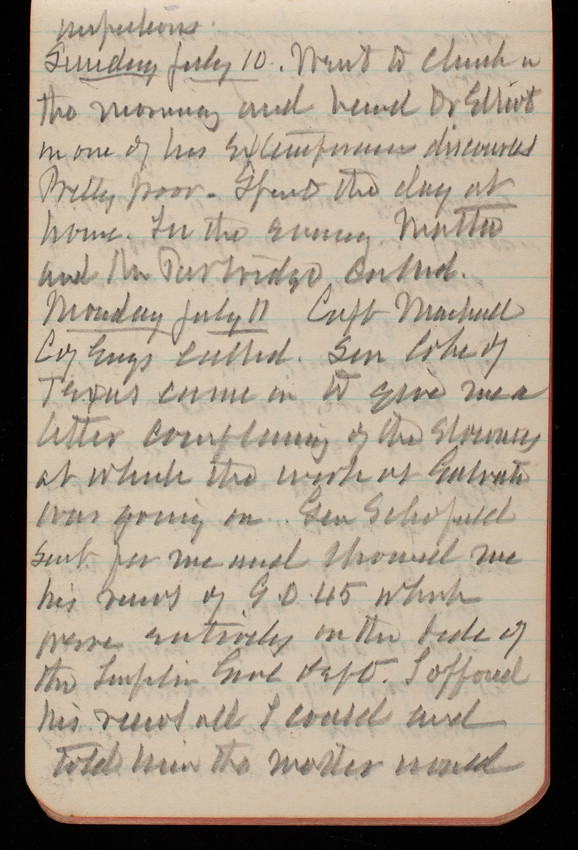 inspections.
Sunday July 10. Went to church in
the morning and heard Dr Elliot
in one of his Extemporaneous discourses
Pretty poor. Spent the day at
home. In the evening Mattie
and Mr Partridge called.
Monday July 11 Capt Marshall
C of Engs called. Gen Coke of
Texas came in to give me a
letter complaining of the slowness
at which the work at Galveston
was going on. Gen Schofield
sent for me and showed me
his views of G.O. 45 which
were entirely on the side of
the Genl dept. I opposed
his views all I could and
told him the matter would